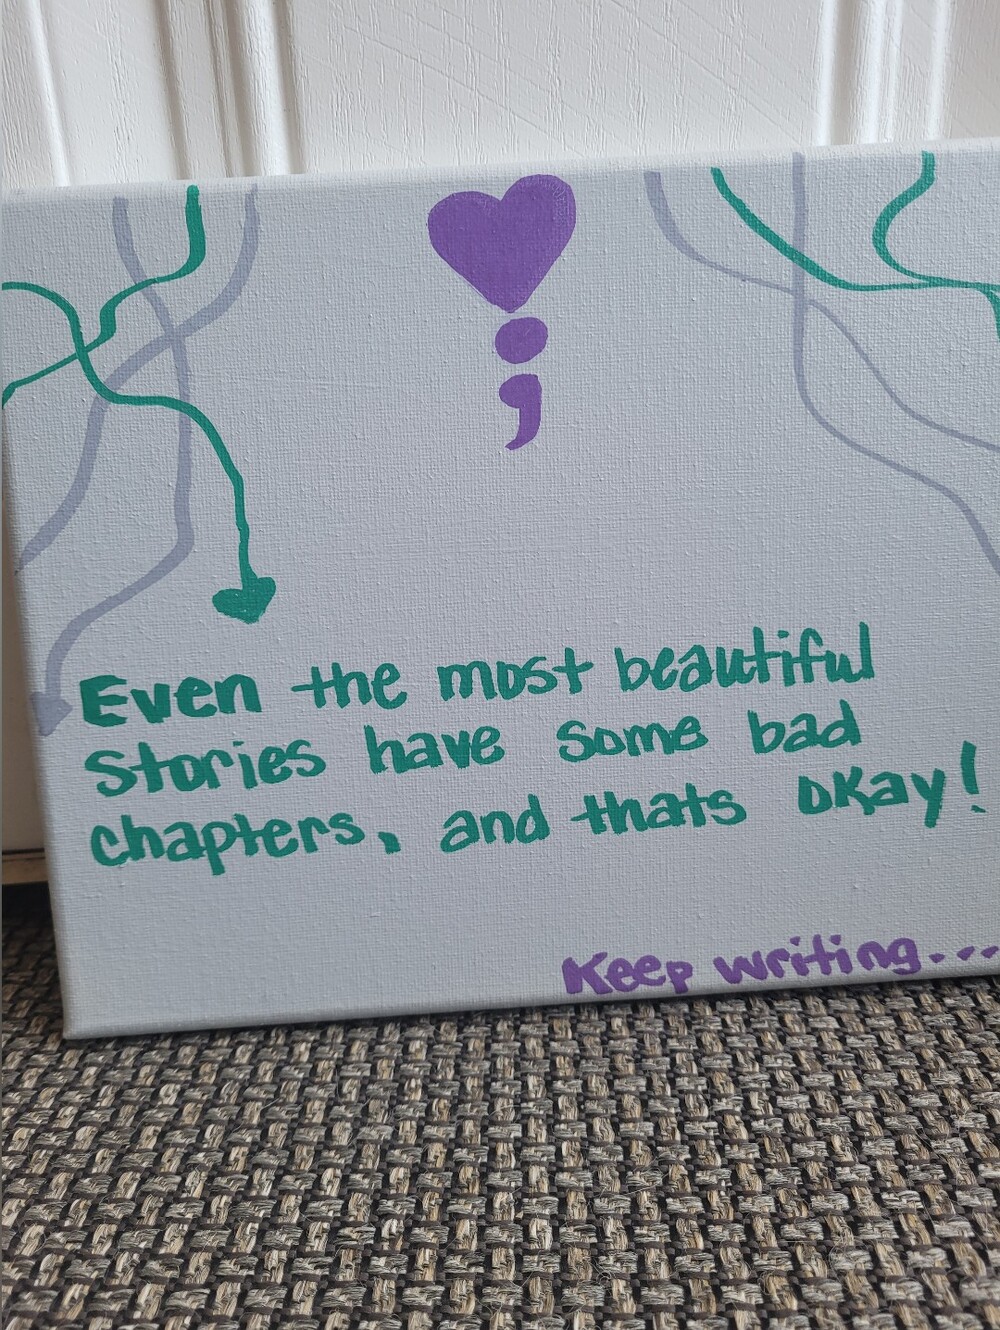 ;
Even the most beautiful
Stories have some bad
chapters, and thats okay!
Keep writing...